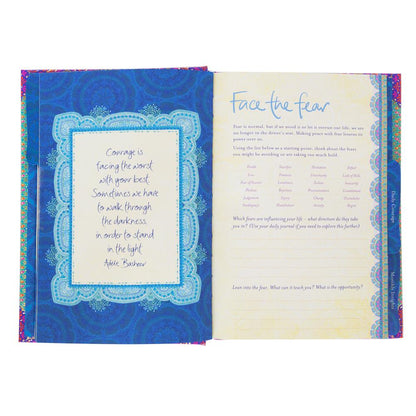 Courage is
facing the worst
with your best.
Sometimes we have
to walk through
the darkness,
in order to stand
in the light
Adèle Basheer
Face the fear
Fear is normal, but if we avoid it or let it overrun our life, we are
no longer in the driver's seat. Making peace with fear leaves its
power over us.
Using the list below as a starting point, think about the fears
you might be avoiding or are taking too much hold.
Death Sacrifice Rejection
Loss Poverty Uncertainty Lack of Skill
Fear of Success Loneliness Failure Insecurity
Illness Disappointment
Judgement Injury Change Boredom
Inadequacy
Which fears are influencing your life – what direction do they take
you in? (Use your daily journal if you need to explore this further).
Lean into the fear. What can it teach you? What is the opportunity?
Daily Courage
Monthly Insights